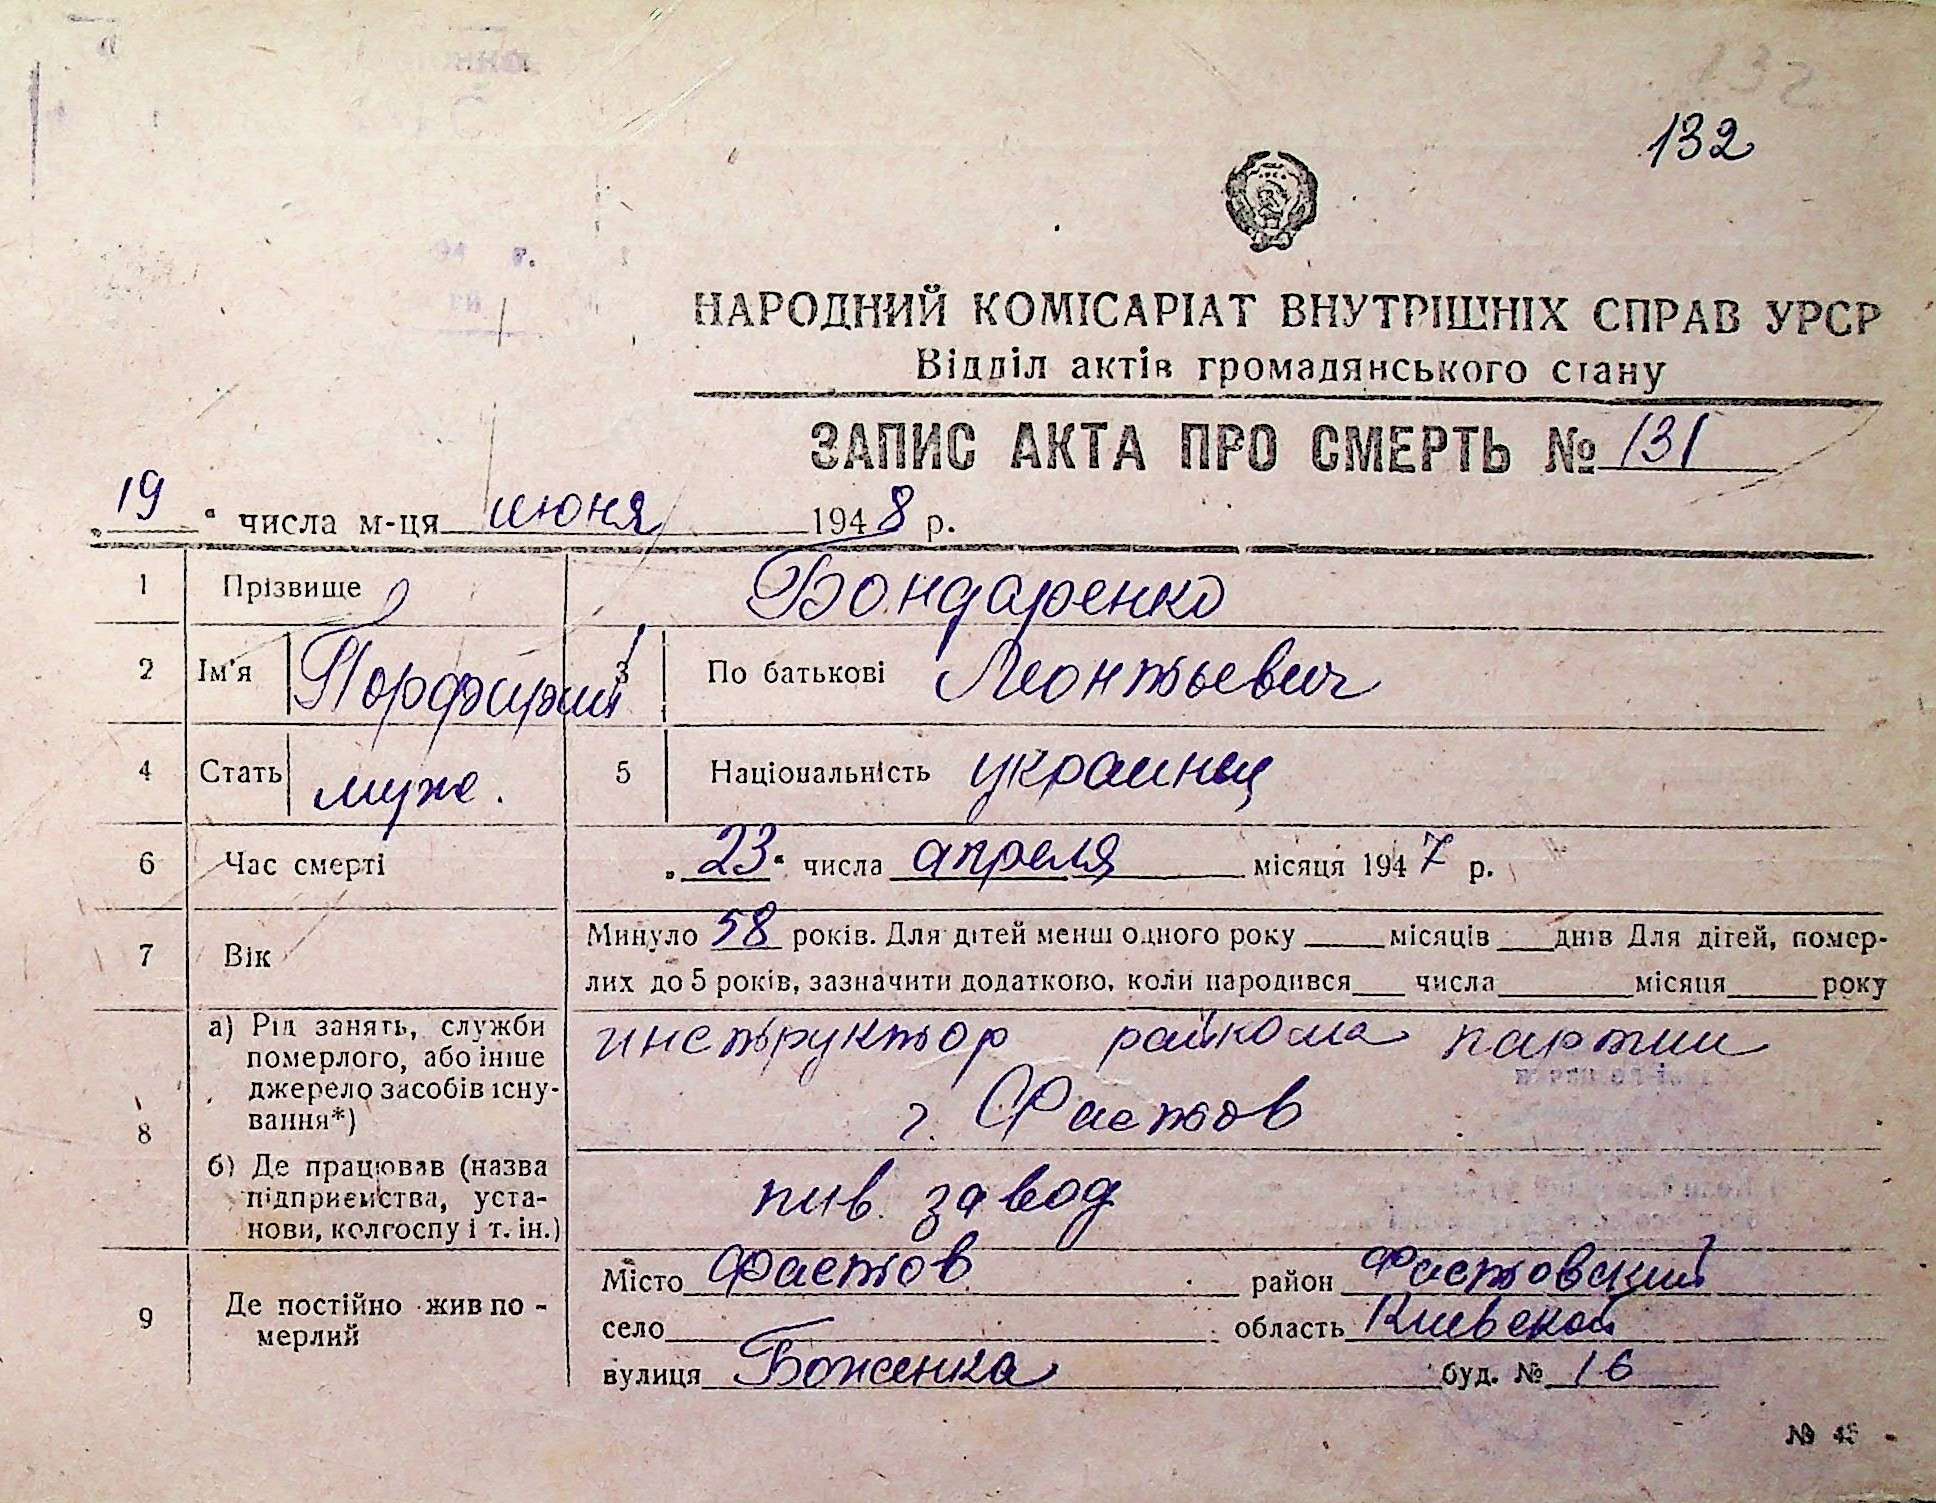 132
НАРОДНИЙ КОМІСАРІАТ ВНУТРІШНІХ СПРАВ УРСР
Відділ актів громадянського стану
ЗАПИС АКТА ПРО СМЕРТЬ № 131
„19“ числа м-ця июня 1948 р.
1 Прізвище Бондаренко
2 Ім'я Порфирий 3 По батькові Леонтьевич
4 Стать муж. 5 Національність украинец
6 Час смерті „23“ числа апреля місяця 1947 р.
7 Вік Минуло 58 років. Для дітей менш одного року ___ місяців ___ днів Для дітей, помер-
лих до 5 років, зазначити додатково, коли народився ___ числа ___ місяця ___ року
8 а) Рід занять, служби
померлого, або інше
джерело засобів існу-
вання*)
инструктор райкома партии
г. Фастов
б) Де працював (назва
підприємства, уста-
нови, колгоспу і т. ін.)
пив. завод
9 Де постійно жив по-
мерлий
Місто Фастов район Фастовский
село ___ область Киевской
вулиця Боженка буд. № 16